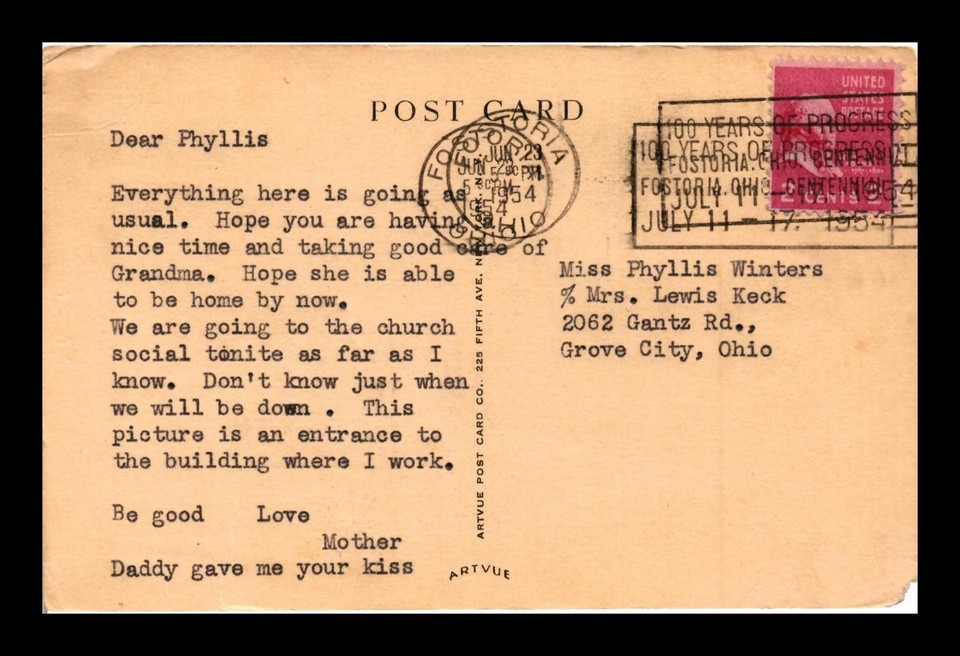 POST CARD
Dear Phyllis
Everything here is going as
usual. Hope you are having a
nice time and taking good care of
Grandma. Hope she is able
to be home by now.
We are going to the church
social tonite as far as I
know. Don't know just when
we will be down . This
picture is an entrance to
the building where I work.
Be good Love
Mother
Daddy gave me your kiss
ARTVUE POST CARD CO., 225 FIFTH AVE. NEW YORK
ARTVUE
FOSTORIA
JUN 23
5 30 PM
1954
OHIO
100 YEARS OF PROGRESS
FOSTORIA, OHIO, CENTENNIAL
JULY 11 - 17, 1954
100 YEARS OF PROGRESS
FOSTORIA, OHIO, CENTENNIAL
JULY 11 - 17, 1954
UNITED
STATES
POSTAGE
2 CENTS 2
Miss Phyllis Winters
% Mrs. Lewis Keck
2062 Gantz Rd.,
Grove City, Ohio